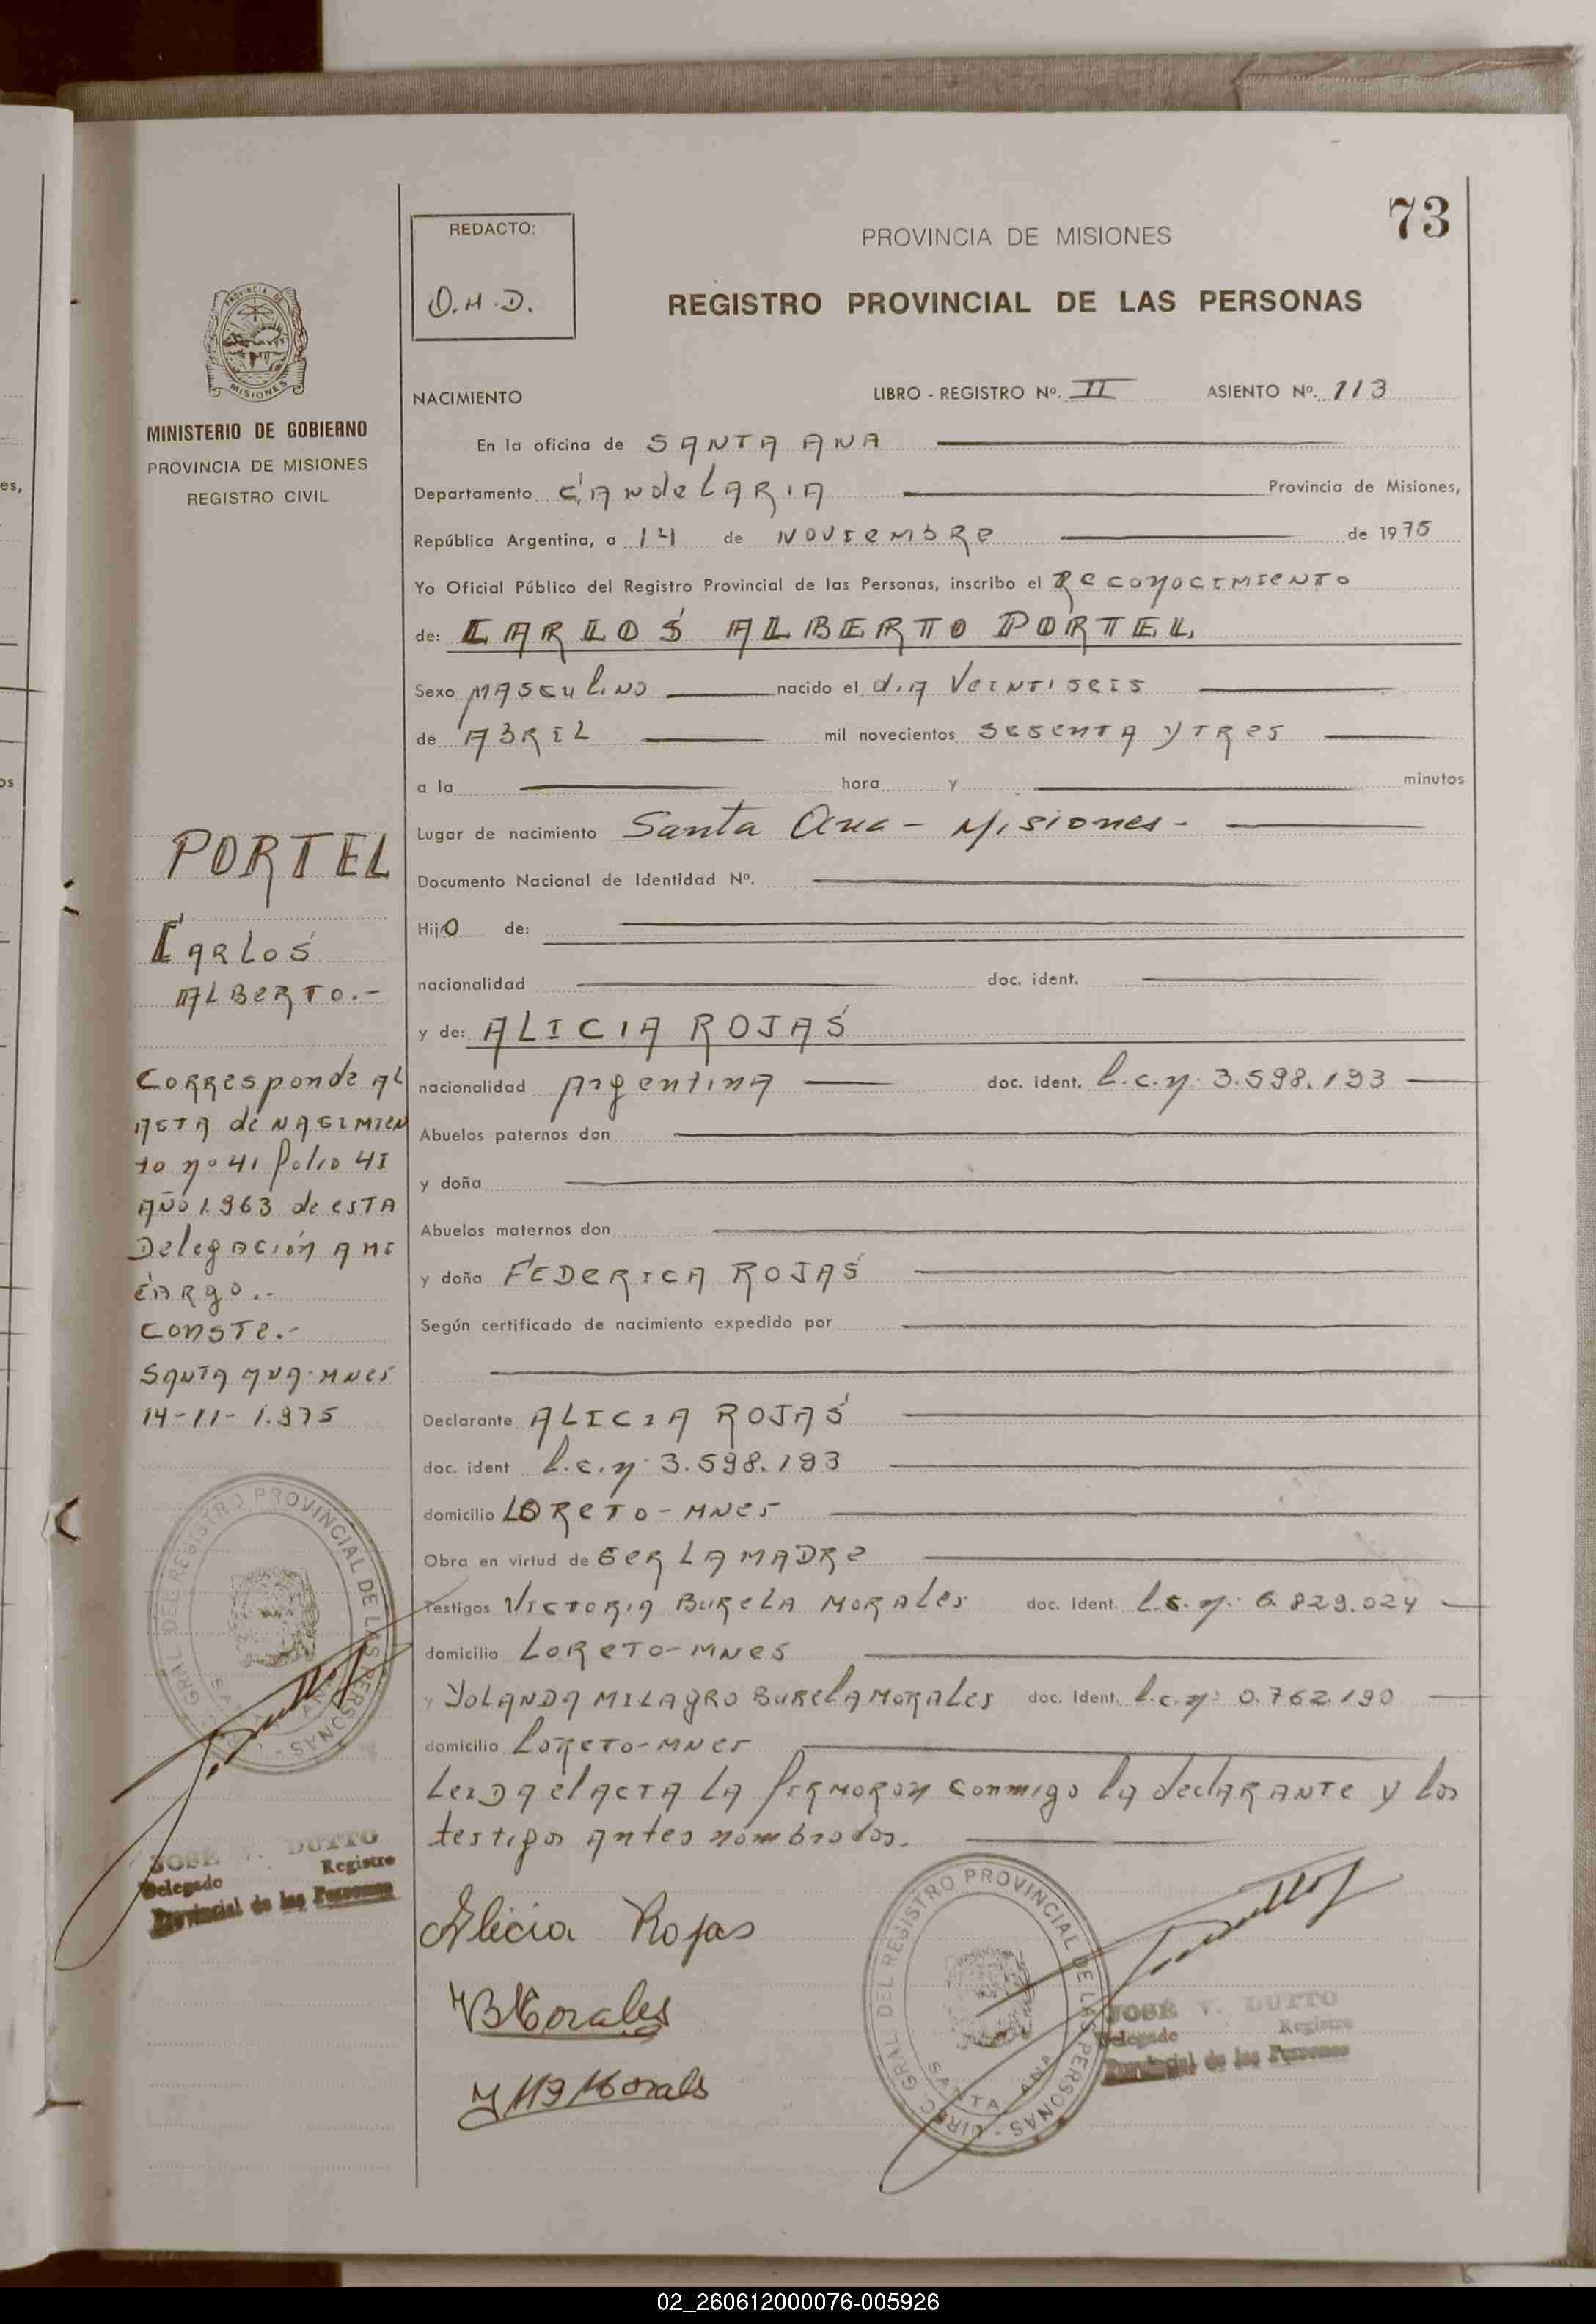 73
REDACTO:
O.H.D.
PROVINCIA DE MISIONES
REGISTRO PROVINCIAL DE LAS PERSONAS
PROVINCIA DE
MISIONES
MINISTERIO DE GOBIERNO
PROVINCIA DE MISIONES
REGISTRO CIVIL
NACIMIENTO LIBRO - REGISTRO Nº. II ASIENTO Nº. 113
En la oficina de SANTA ANA
Departamento CANDELARIA Provincia de Misiones,
República Argentina, a 14 de NOVIEMBRE de 1975
Yo Oficial Público del Registro Provincial de las Personas, inscribo el Reconocimiento
de: CARLOS ALBERTO PORTEL
Sexo MASCULINO nacido el día VEINTISEIS
de ABRIL mil novecientos SESENTA Y TRES
a la hora y minutos
Lugar de nacimiento Santa Ana - Misiones -
Documento Nacional de Identidad Nº.
Hijo de:
nacionalidad doc. ident.
y de: ALICIA ROJAS
nacionalidad Argentina doc. ident. l.c.nº 3.598.193
Abuelos paternos don
y doña
Abuelos maternos don
y doña FEDERICA ROJAS
Según certificado de nacimiento expedido por
Declarante ALICIA ROJAS
doc. ident l.c.nº 3.598.193
domicilio LORETO - MNES
Obra en virtud de SER LA MADRE
Testigos VICTORIA BURELA MORALES doc. Ident. l.c.nº: 6.829.024
domicilio LORETO - MNES
y YOLANDA MILAGRO BURELA MORALES doc. Ident. l.c.nº: 0.762.190
domicilio LORETO - MNES
LEIDA el ACTA LA FIRMORON conmigo la declarante y los
testigos antes nombrados.
PORTEL
CARLOS
ALBERTO.-
Corresponde al
ASTA de NASIMIEN
to nº 41 folio 41
AÑO 1.963 de esta
Delegación a mi
cargo.-
CONSTE.-
SANTA ANA - MNES
14-11-1.975
DIREC. GRAL DEL REGISTRO PROVINCIAL DE LAS PERSONAS
SANTA ANA
JOSÉ V. DUTTO
Delegado Registro
Provincial de las Personas
Alicia Rojas
VBMorales
YMB Morales
DIREC. GRAL DEL REGISTRO PROVINCIAL DE LAS PERSONAS
SANTA ANA
JOSÉ V. DUTTO
Delegado Registro
Provincial de las Personas
02_260612000076-005926